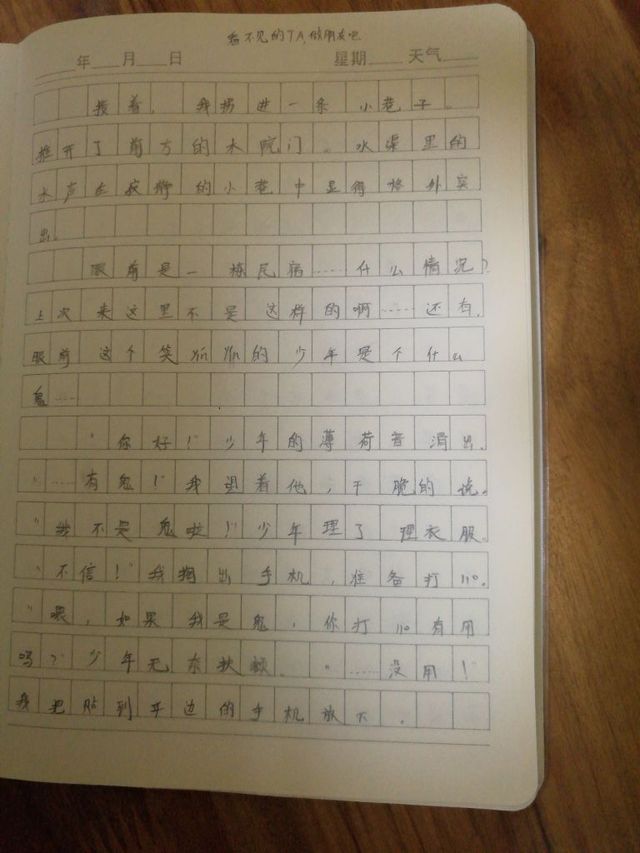 看不见的TA,做朋友吧
年 月 日 星期 天气
接着，我拐进一条小巷子。
推开了前方的木院门。水渠里的
水声在寂静的小巷中显得格外突
出。
眼前是一栋民宿……什么情况？
上次来这里不是这样的啊……还有，
眼前这个笑眯眯的少年是个什么
鬼……
"你好！"少年的薄荷音滑出。
"……有鬼！"我望着他，干脆的说。
"我不是鬼啦！"少年理了理衣服。
"不信！"我掏出手机，准备打110。
"喂，如果我是鬼，你打110有用
吗？"少年无奈扶额。"……没用！"
我把贴到耳边的手机放下，